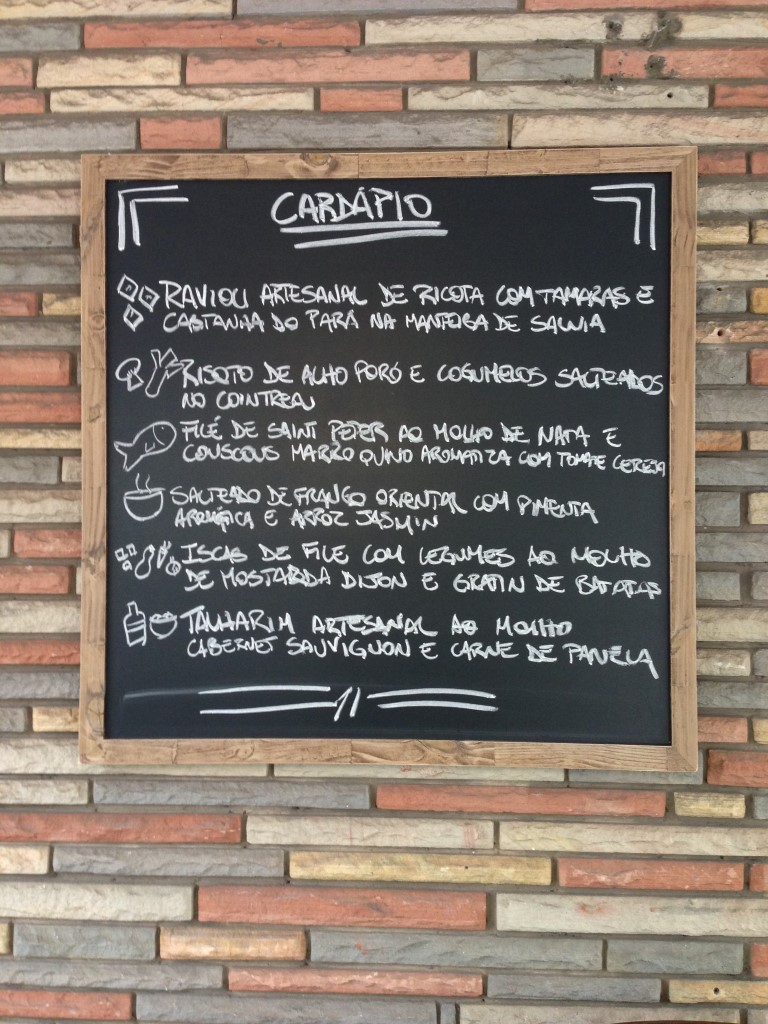 CARDÁPIO
RAVIOLI ARTESANAL DE RICOTA COM TAMARAS E
CASTANHA DO PARÁ NA MANTEIGA DE SALVIA
RISOTO DE ALHO PORÓ E COGUMELOS SALTEADOS
NO COINTREAU
FILÉ DE SAINT PETER AO MOLHO DE NATA E
COUSCOUS MARROQUINO AROMATIZA COM TOMATE CEREJA
SALTEADO DE FRANGO ORIENTAL COM PIMENTA
E ARROZ JASMIN
ISCAS DE FILE COM LEGUMES AO MOLHO
DE MOSTARDA DIJON E GRATIN DE BATATAS
TALHARIM ARTESANAL AO MOLHO
CABERNET SAUVIGNON E CARNE DE PANELA